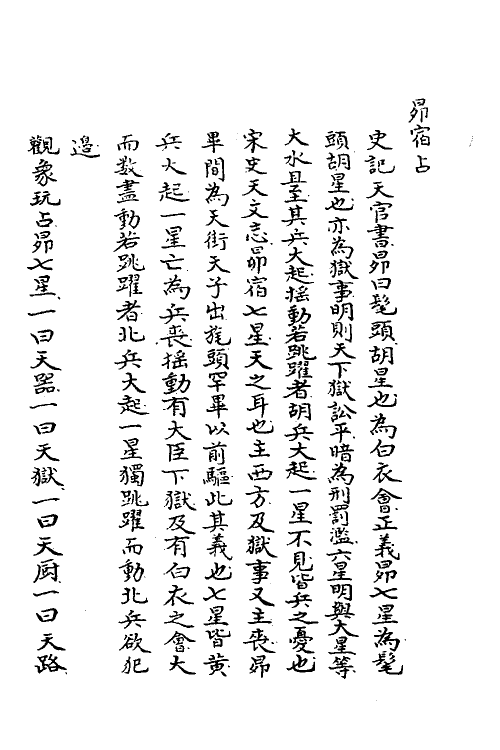 昴宿占
史記天官書昴曰髦頭胡星也為白衣會正義昴七星為髦
頭胡星也亦為獄事明則天下獄訟平暗為刑罰濫六星明與大星等
大水且至其兵大起揺動若跳躍者胡兵大起一星不見皆兵之憂也
宋史天文志昴宿七星天之耳也主西方及獄事又主喪昴
畢間為天街天子出旄頭罕畢以前驅此其義也七星皆黄
兵大起一星亡為兵喪揺動有大臣下獄及有白衣之會大
而数盡動若跳躍者北兵大起一星獨跳躍而動北兵欲犯
邉
觀象玩占昴七星一曰天噐一曰天獄一曰天厨一曰天路